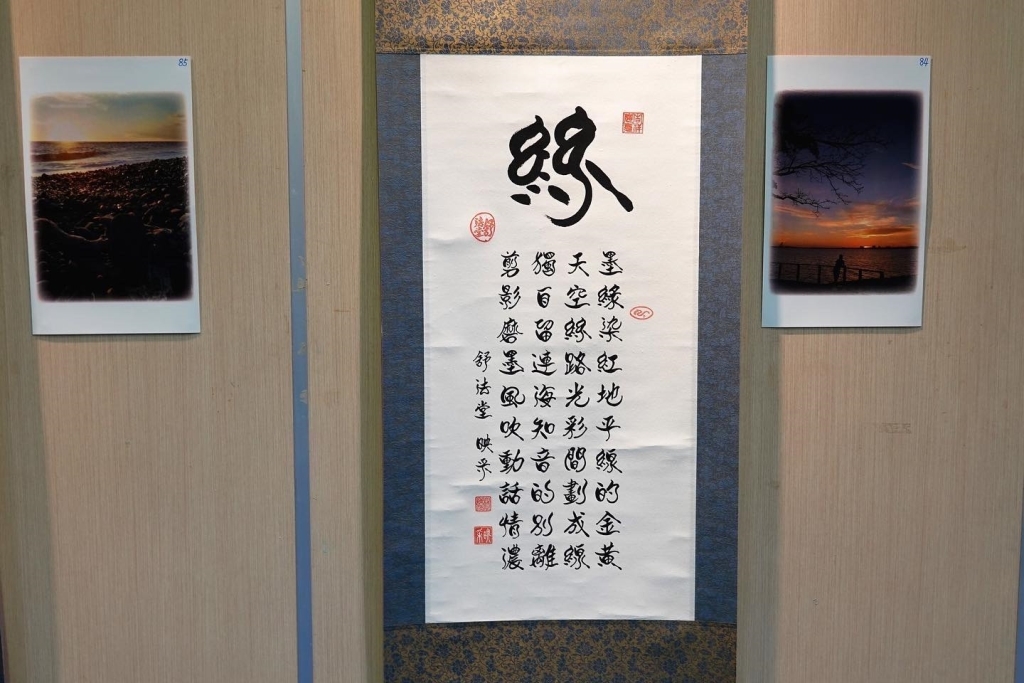 緣
墨緣染紅地平線的金黃
天空絲路光彩間劃成線
獨自留連海知音的別離
剪影磨墨風吹動話情濃
舒法堂 映采
85
84